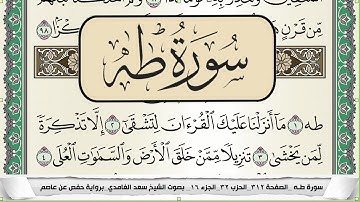 سورة طه
طه ١ مَآ أَنزَلْنَا عَلَيْكَ ٱلْقُرْءَانَ لِتَشْقَىٰٓ ٢ إِلَّا تَذْكِرَةً
لِّمَن يَخْشَىٰ ٣ تَنزِيلًا مِّمَّنْ خَلَقَ ٱلْأَرْضَ وَٱلسَّمَٰوَٰتِ ٱلْعُلَى ٤
سورة طـه _ الصفحة ٣١٢ _ الحزب ٣٢ _ الجزء ١٦ _ بصوت الشيخ سعد الغامدي _ برواية حفص عن عاصم